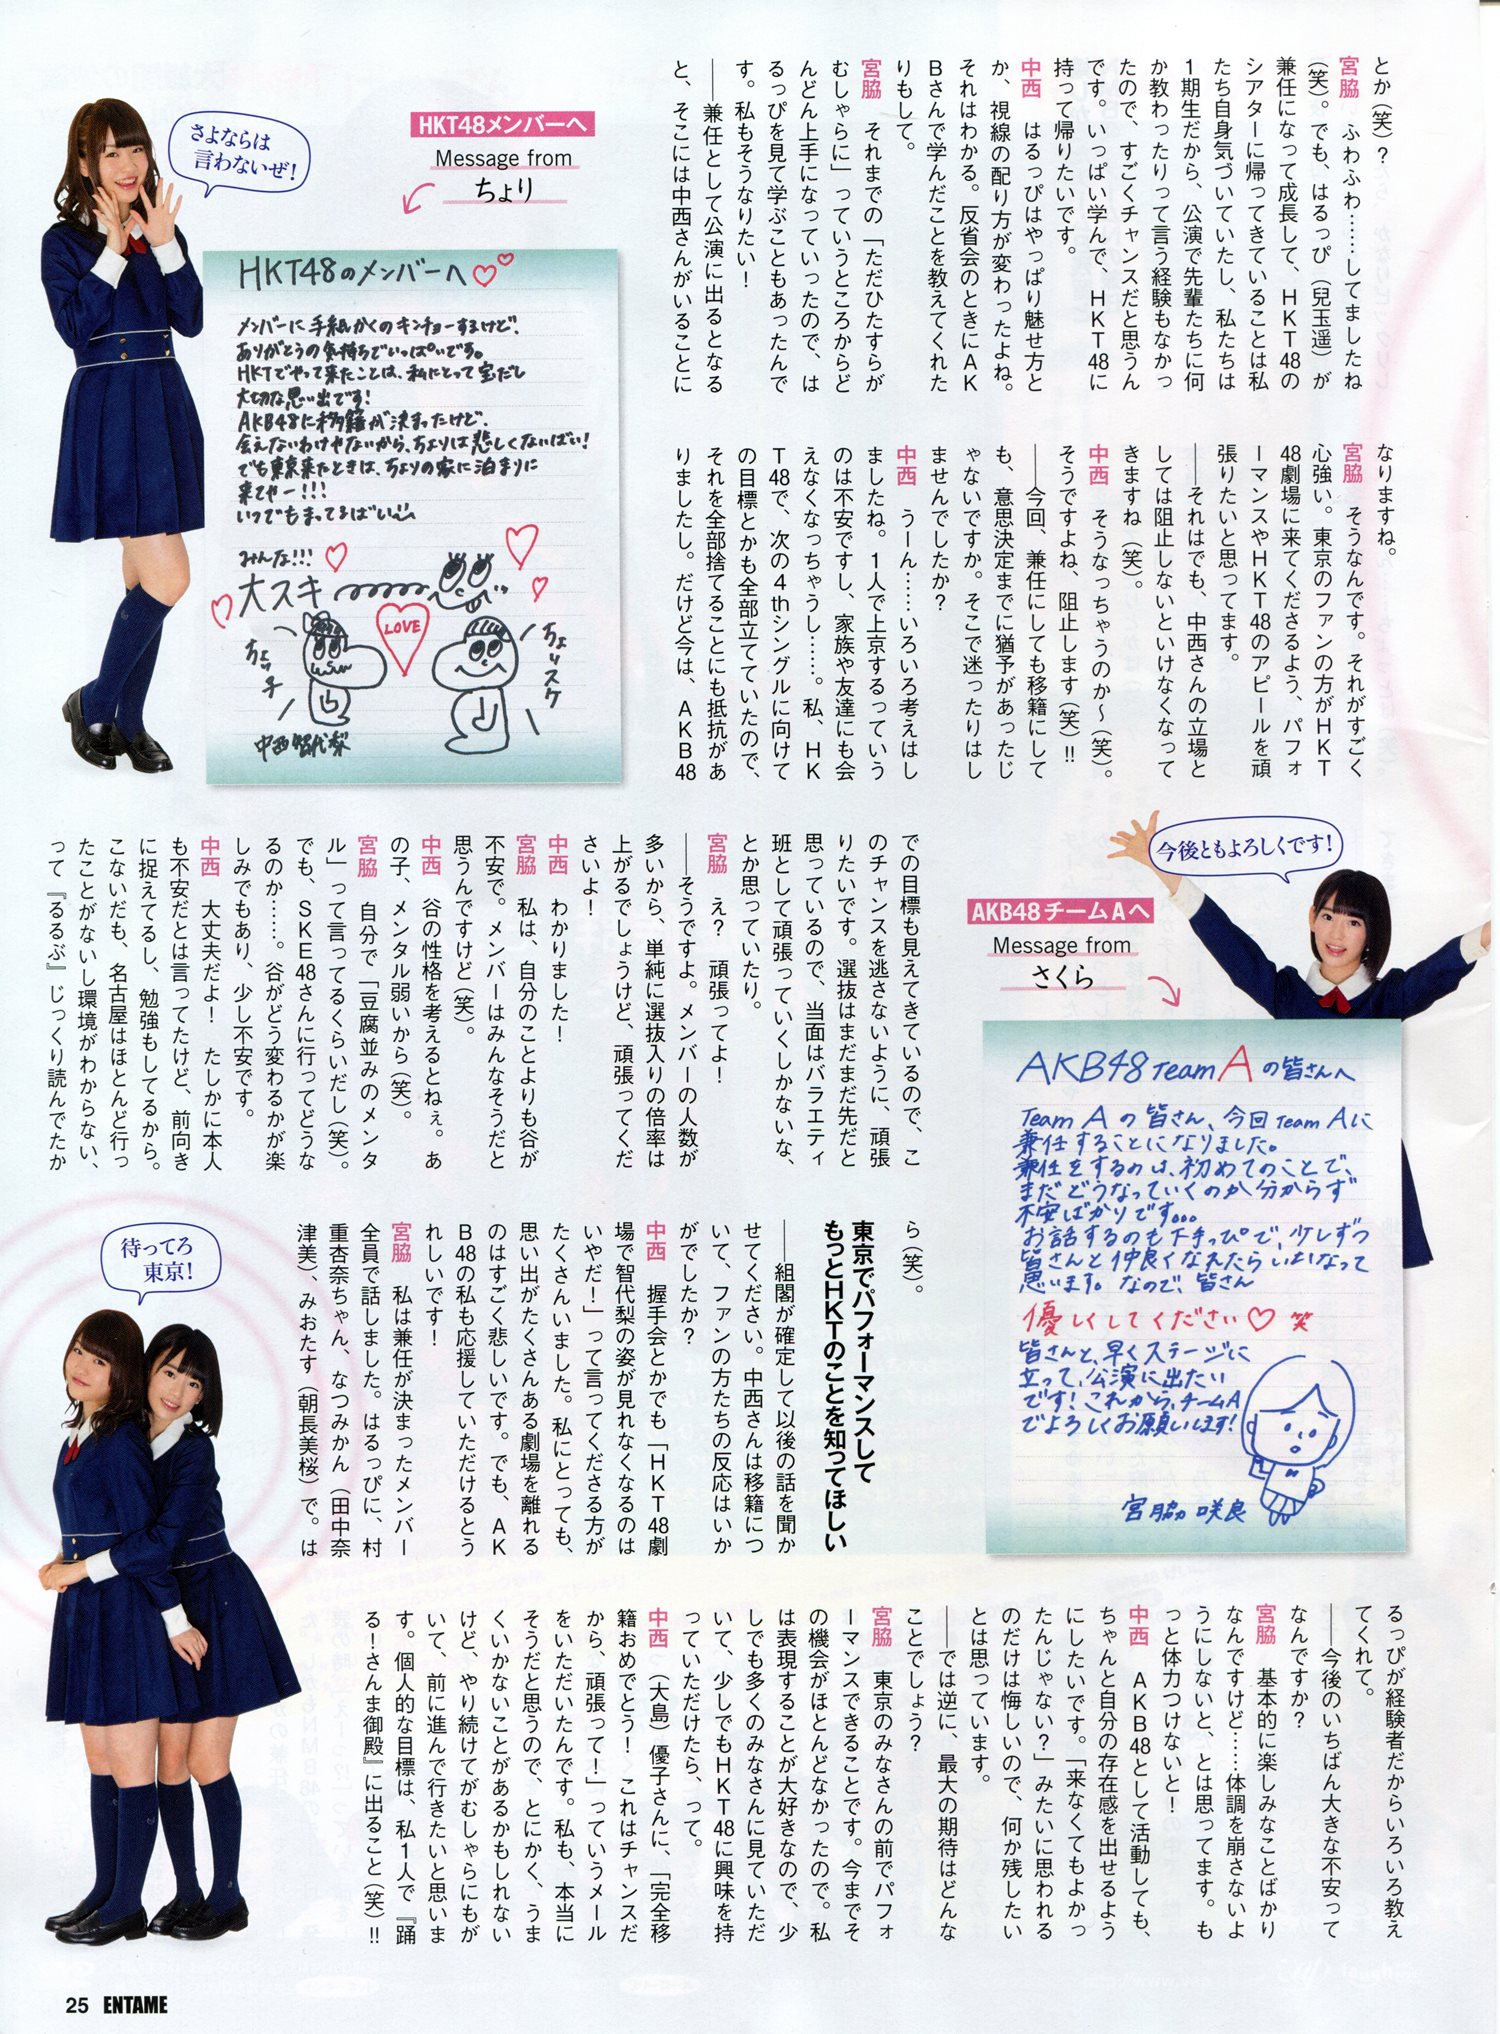 とか（笑）？
宮脇　ふわふわ……してましたね
（笑）。でも、はるっぴ（兒玉遥）が
兼任になって成長して、ＨＫＴ48の
シアターに帰ってきていることは私
たち自身気づいていたし、私たちは
１期生だから、公演で先輩たちに何
か教わったりって言う経験もなかっ
たので、すごくチャンスだと思うん
です。いっぱい学んで、ＨＫＴ48に
持って帰りたいです。
中西　はるっぴはやっぱり魅せ方と
か、視線の配り方が変わったよね。
それはわかる。反省会のときにＡＫ
Ｂさんで学んだことを教えてくれた
りもして。
宮脇　それまでの「ただひたすらが
むしゃらに」っていうところからど
んどん上手になっていったので、は
るっぴを見て学ぶこともあったんで
す。私もそうなりたい！
――兼任として公演に出るとなる
と、そこには中西さんがいることに
なりますね。
宮脇　そうなんです。それがすごく
心強い。東京のファンの方がＨＫＴ
48劇場に来てくださるよう、パフォ
ーマンスやＨＫＴ48のアピールを頑
張りたいと思ってます。
――それはでも、中西さんの立場と
しては阻止しないといけなくなって
きますね（笑）。
中西　そうなっちゃうのか～（笑）。
そうですよね、阻止します（笑）!!
――今回、兼任にしても移籍にして
も、意思決定までに猶予があったじ
ゃないですか。そこで迷ったりはし
ませんでしたか？
中西　うーん……いろいろ考えはし
ましたね。１人で上京するっていう
のは不安ですし、家族や友達にも会
えなくなっちゃうし……。私、ＨＫ
Ｔ48で、次の４thシングルに向けて
の目標とかも全部立てていたので、
それを全部捨てることにも抵抗があ
りましたし。だけど今は、ＡＫＢ48
での目標も見えてきているので、こ
のチャンスを逃さないように、頑張
りたいです。選抜はまだまだ先だと
思っているので、当面はバラエティ
班として頑張っていくしかないな、
とか思っていたり。
宮脇　え？　頑張ってよ！
――そうですよ。メンバーの人数が
多いから、単純に選抜入りの倍率は
上がるでしょうけど、頑張ってくだ
さいよ！
中西　わかりました！
宮脇　私は、自分のことよりも谷が
不安で。メンバーはみんなそうだと
思うんですけど（笑）。
中西　谷の性格を考えるとねぇ。あ
の子、メンタル弱いから（笑）。
宮脇　自分で「豆腐並みのメンタ
ル」って言ってるくらいだし（笑）。
でも、ＳＫＥ48さんに行ってどうな
るのか……。谷がどう変わるかが楽
しみでもあり、少し不安です。
中西　大丈夫だよ！　たしかに本人
も不安だとは言ってたけど、前向き
に捉えてるし、勉強もしてるから。
こないだも、名古屋はほとんど行っ
たことがないし環境がわからない、
って『るるぶ』じっくり読んでたか
ら（笑）。
東京でパフォーマンスして
もっとＨＫＴのことを知ってほしい
――組閣が確定して以後の話を聞か
せてください。中西さんは移籍につ
いて、ファンの方たちの反応はいか
がでしたか？
中西　握手会とかでも「ＨＫＴ48劇
場で智代梨の姿が見れなくなるのは
いやだ！」って言ってくださる方が
たくさんいました。私にとっても、
思い出がたくさんある劇場を離れる
のはすごく悲しいです。でも、ＡＫ
Ｂ48の私も応援していただけるとう
れしいです！
宮脇　私は兼任が決まったメンバー
全員で話しました。はるっぴに、村
重杏奈ちゃん、なつみかん（田中奈
津美）、みおたす（朝長美桜）で。は
るっぴが経験者だからいろいろ教え
てくれて。
――今後のいちばん大きな不安って
なんですか？
宮脇　基本的に楽しみなことばかり
なんですけど……体調を崩さないよ
うにしないと、とは思ってます。も
っと体力つけないと！
中西　ＡＫＢ48として活動しても、
ちゃんと自分の存在感を出せるよう
にしたいです。「来なくてもよかっ
たんじゃない？」みたいに思われる
のだけは悔しいので、何か残したい
とは思っています。
――では逆に、最大の期待はどんな
ことでしょう？
宮脇　東京のみなさんの前でパフォ
ーマンスできることです。今までそ
の機会がほとんどなかったので。私
は表現することが大好きなので、少
しでも多くのみなさんに見ていただ
いて、少しでもＨＫＴ48に興味を持
っていただけたら、って。
中西　（大島）優子さんに、「完全移
籍おめでとう！　これはチャンスだ
から、頑張って！」っていうメール
をいただいたんです。私も、本当に
そうだと思うので、とにかく、うま
くいかないことがあるかもしれない
けど、やり続けてがむしゃらにもが
いて、前に進んで行きたいと思いま
す。個人的な目標は、私１人で『踊
る！さんま御殿』に出ること（笑）!!
さよならは
言わないぜ！
HKT48メンバーへ
Message from
ちょり
HKT48のメンバーへ♡♡
メンバーに手紙かくのキンチョーするけど、
ありがとうの気持ちでいっぱいです。
HKTでやって来たことは、私にとって宝だし
大切な思い出です！
AKB48に移籍が決まったけど、
会えないわけやないから、ちょりは悲しくないばい！
でも東京来たときは、ちょりの家に泊まりに
来てやー！！！
いつでもまってるばい
みんな!!!
大スキ
LOVE
ちょっ子
ちょりスケ
中西智代梨
今後ともよろしくです！
AKB48チームAへ
Message from
さくら
AKB48 Team Aの皆さんへ
Team Aの皆さん、今回Team Aに
兼任することになりました。
兼任をするのは、初めてのことで、
まだどうなっていくのか分からず
不安ばかりです。。。
お話するのも下手っぴで、少しずつ
皆さんと仲良くなれたらいいなって
思います。なので、皆さん
優しくしてください♡笑
皆さんと、早くステージに
立って、公演に出たい
です！これから、チームA
でよろしくお願いします！
宮脇咲良
待ってろ
東京！
25 ENTAME